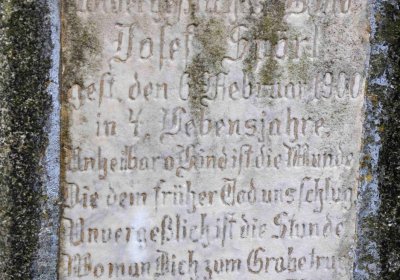 Josef Spörl
gest. den 6. Februar 1900
in 4. Lebensjahre.
Unheilbar o Kind ist die Wunde
Die dem früher Tod uns schlug
Unvergeßlich ist die Stunde
Wo man Dich zum Grabe trug